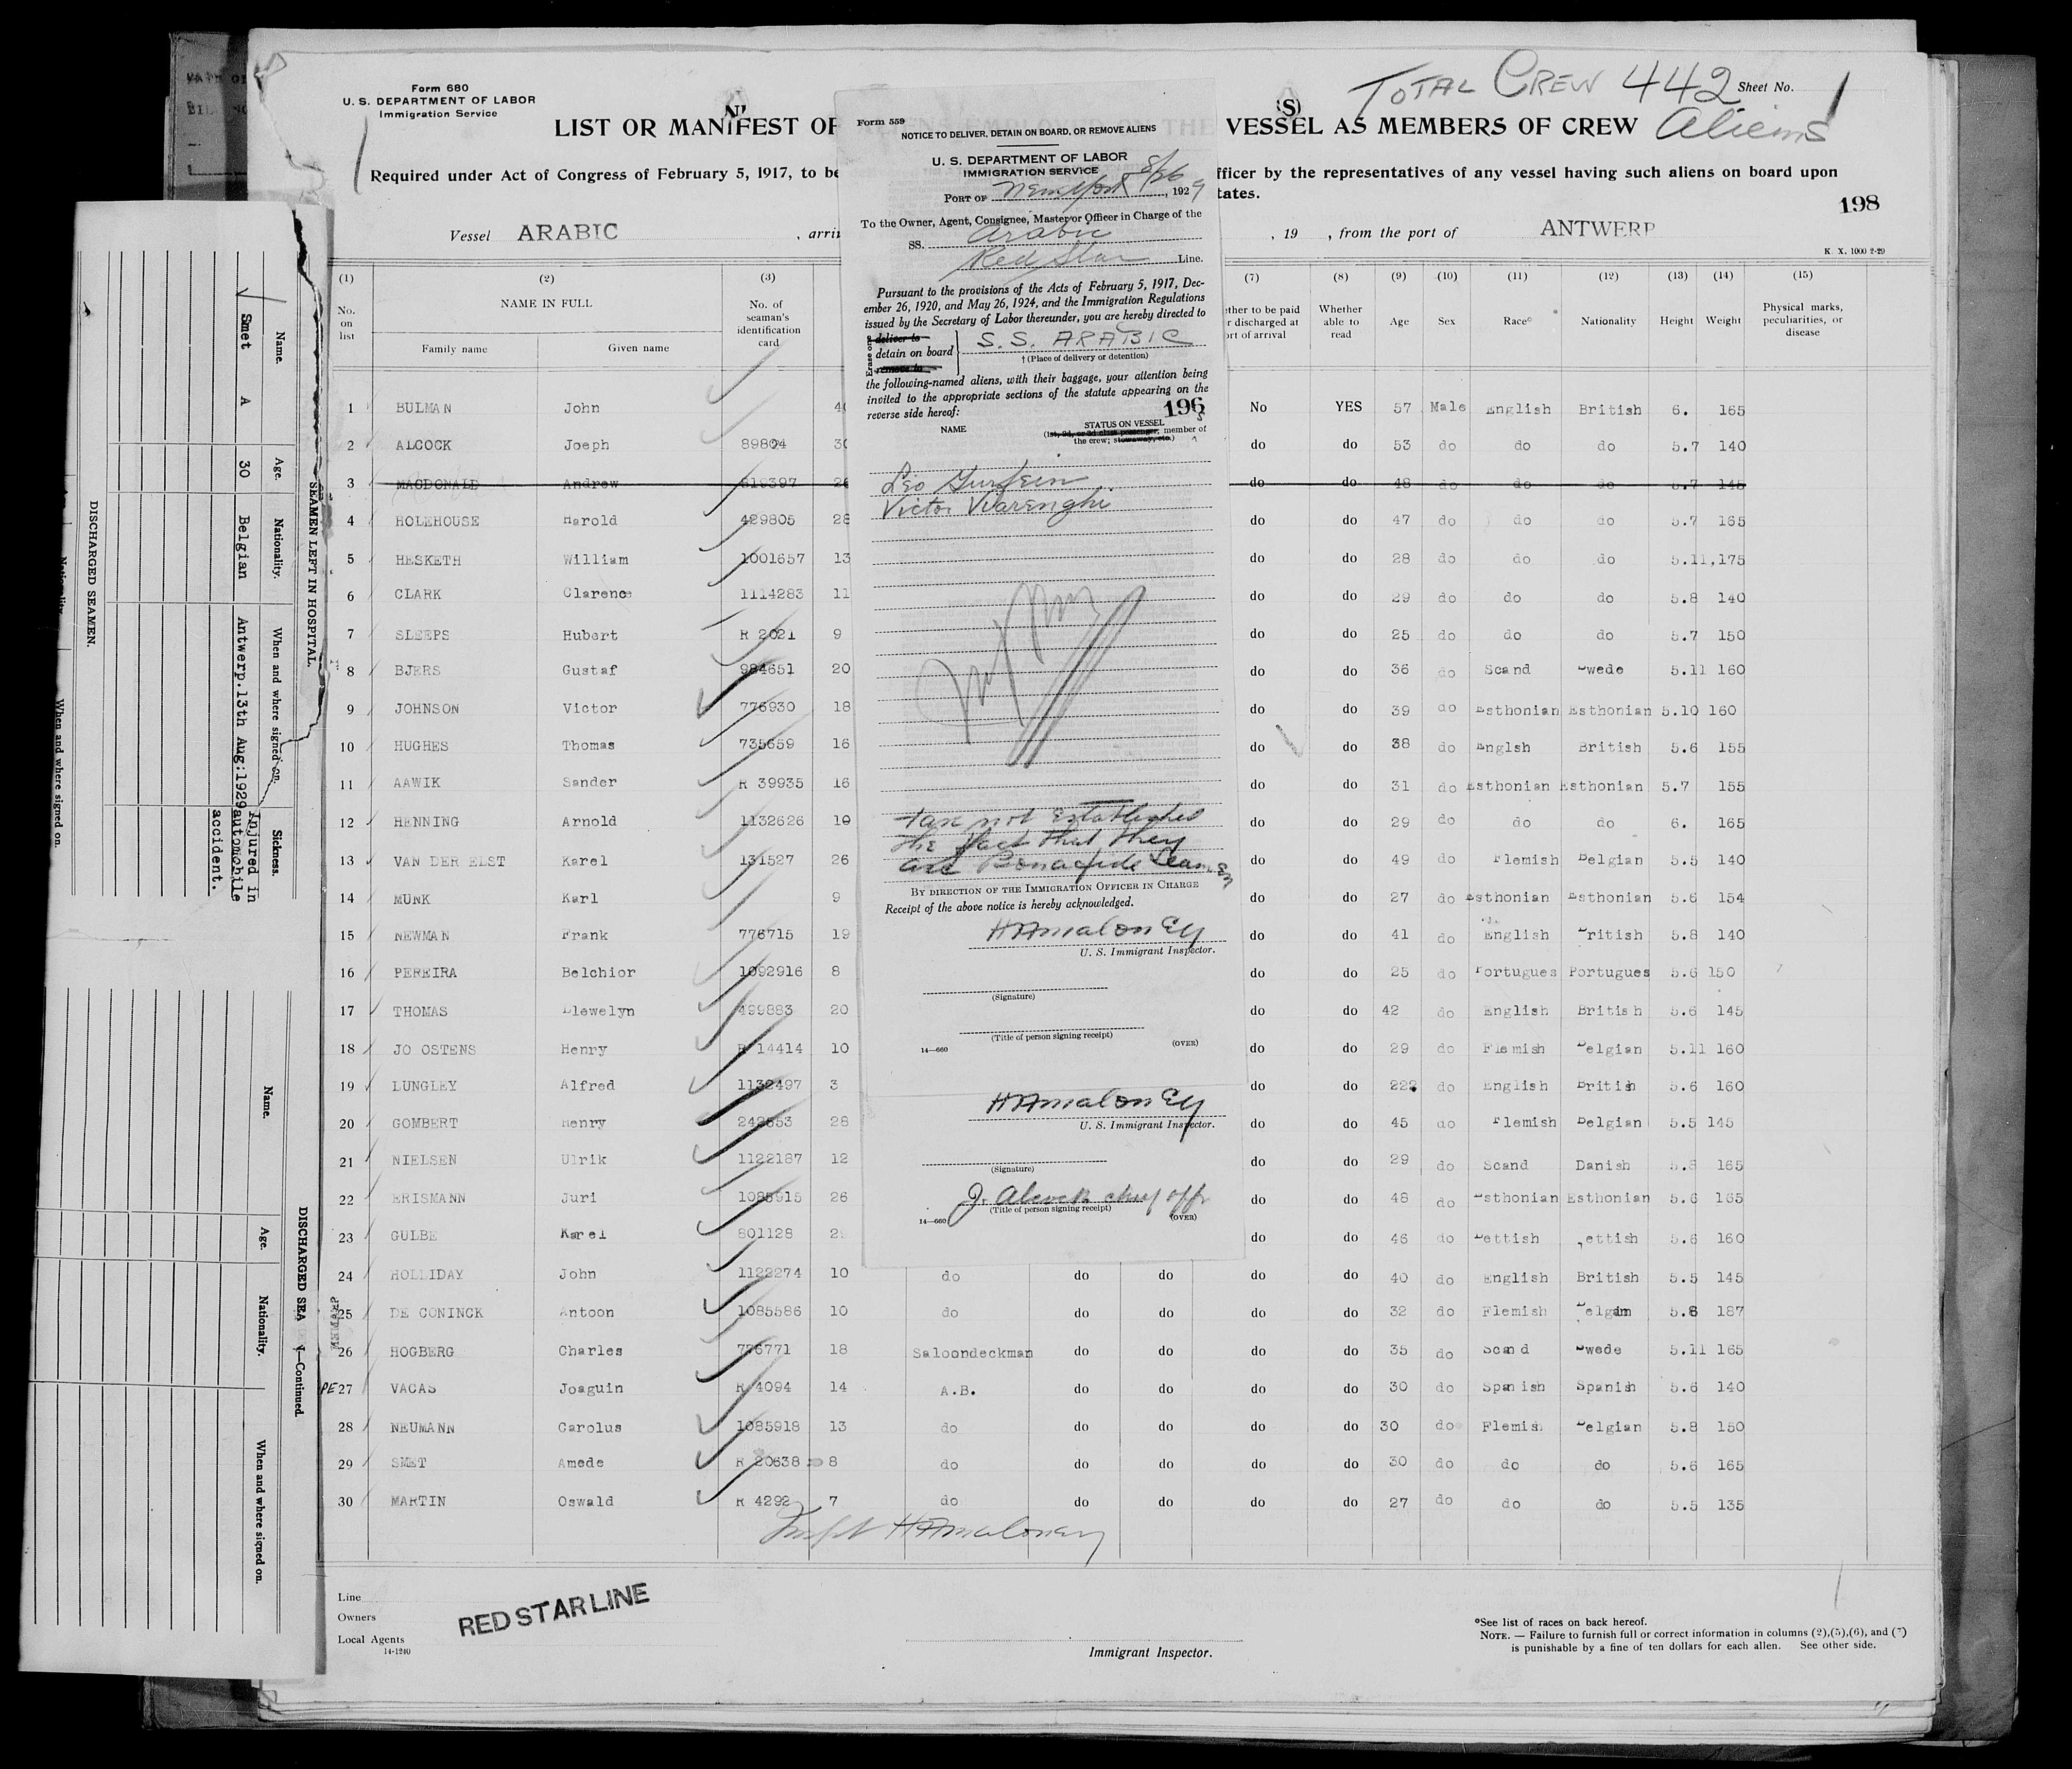 Form 680
U. S. DEPARTMENT OF LABOR
Immigration Service
TOTAL CREW 442 Sheet No. 1
Aliens
LIST OR MANIFEST OF ALIENS EMPLOYED ON THE VESSEL AS MEMBERS OF CREW
(S)
Required under Act of Congress of February 5, 1917, to be
fficer by the representatives of any vessel having such aliens on board upon
tates.
198
Vessel ARABIC , arri , 19 , from the port of ANTWERP
K. X. 1000 2-29
(1) (2) (3) (7) (8) (9) (10) (11) (12) (13) (14) (15)
No. on list NAME IN FULL Family name Given name No. of seaman's identification card ether to be paid r discharged at ort of arrival Whether able to read Age Sex Race° Nationality Height Weight Physical marks, peculiarities, or disease
1 BULMAN John No YES 57 Male English British 6. 165
2 ALCOCK Joeph 89804 30 do do 53 do do do 5.7 140
3 MACDONALD Andrew 26 do do 48 do do do 5.7 145
4 HOLEHOUSE Harold 429805 28 do do 47 do do do 5.7 165
5 HESKETH William 1001657 13 do do 28 do do do 5.11,175
6 CLARK Clarence 1114283 11 do do 29 do do do 5.8 140
7 SLEEPS Hubert R 2021 9 do do 25 do do do 5.7 150
8 BJERS Gustaf 984651 20 do do 36 do Scand Swede 5.11 160
9 JOHNSON Victor 776930 18 do do 39 do Esthonian Esthonian 5.10 160
10 HUGHES Thomas 735659 16 do do 38 do Englsh British 5.6 155
11 AAWIK Sander R 39935 16 do do 31 do Esthonian Esthonian 5.7 155
12 HENNING Arnold 1132626 10 do do 29 do do do 6. 165
13 VAN DER ELST Karel 131527 26 do do 49 do Flemish Belgian 5.5 140
14 MUNK Karl 9 do do 27 do Esthonian Esthonian 5.6 154
15 NEWMAN Frank 776715 19 do do 41 do English British 5.8 140
16 PEREIRA Belchior 1092916 8 do do 25 do Portugues Portugues 5.6 150
17 THOMAS Llewelyn 499883 20 do do 42 do English British 5.6 145
18 JO OSTENS Henry R 14414 10 do do 29 do Flemish Belgian 5.11 160
19 LUNGLEY Alfred 1132497 3 do do 22 do English British 5.6 160
20 GOMBERT Henry 28 do do 45 do Flemish Belgian 5.5 145
21 NIELSEN Ulrik 1122187 12 do do 29 do Scand Danish 5.8 165
22 ERISMANN Juri 1085915 26 do do 48 do Esthonian Esthonian 5.6 165
23 GULBE Karel 801128 do do 46 do Lettish Lettish 5.6 160
24 HOLLIDAY John 1122274 10 do do do do do 40 do English British 5.5 145
25 DE CONINCK Antoon 1085586 10 do do do do do 32 do Flemish Belgian 5.8 187
26 HOGBERG Charles 776771 18 Saloondeckman do do do do 35 do Scand Swede 5.11 165
PE 27 VACAS Joaguin R 4094 14 A.B. do do do do 30 do Spanish Spanish 5.6 140
28 NEUMANN Carolus 1085918 13 do do do do do 30 do Flemish Belgian 5.8 150
29 SMET Amede R 20638 8 do do do do do 30 do do do 5.6 165
30 MARTIN Oswald R 4292 7 do do do do do 27 do do do 5.5 135
HAMaloney
Line
Owners
Local Agents
14-1240
RED STAR LINE
Immigrant Inspector.
°See list of races on back hereof.
NOTE. — Failure to furnish full or correct information in columns (2),(5),(6), and (7)
is punishable by a fine of ten dollars for each alien. See other side.
Form 559
NOTICE TO DELIVER, DETAIN ON BOARD, OR REMOVE ALIENS
U. S. DEPARTMENT OF LABOR
IMMIGRATION SERVICE
PORT OF New York 8/26, 1929
To the Owner, Agent, Consignee, Master or Officer in Charge of the
SS. Arabic
Red Star Line.
Pursuant to the provisions of the Acts of February 5, 1917, Dec-
ember 26, 1920, and May 26, 1924, and the Immigration Regulations
issued by the Secretary of Labor thereunder, you are hereby directed to
Erase one
deliver to
detain on board S. S. ARABIC
remove to
† (Place of delivery or detention)
the following-named aliens, with their baggage, your attention being
invited to the appropriate sections of the statute appearing on the
reverse side hereof: 196
NAME STATUS ON VESSEL
(1st, 2d, or 3d class passenger, member of
the crew; stowaway, etc.)
Leo
Victor
not Established
the fact that they
are Bonafide Seamen
BY DIRECTION OF THE IMMIGRATION OFFICER IN CHARGE
Receipt of the above notice is hereby acknowledged.
HAMaloney
U. S. Immigrant Inspector.
(Signature)
(Title of person signing receipt)
14—660 (OVER)
HAMaloney
U. S. Immigrant Inspector.
(Signature)
J. Alcock chief offr
(Title of person signing receipt)
14—660 (OVER)
SEAMEN LEFT IN HOSPITAL.
Name. Age. Nationality. When and where signed on. Sickness.
Smet A 30 Belgian Antwerp.13th Aug:1929 Injured in
automobile
accident.
DISCHARGED SEAMEN.
Nationality. When and where signed on.
DISCHARGED SEA —Continued.
Name. Age. Nationality. When and where signed on.